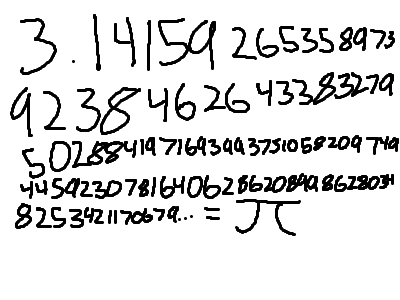 3.14159 265358973
9238462643383279
5028841971693993751058209749
44592307816406286208998628034
8253421170679... = π